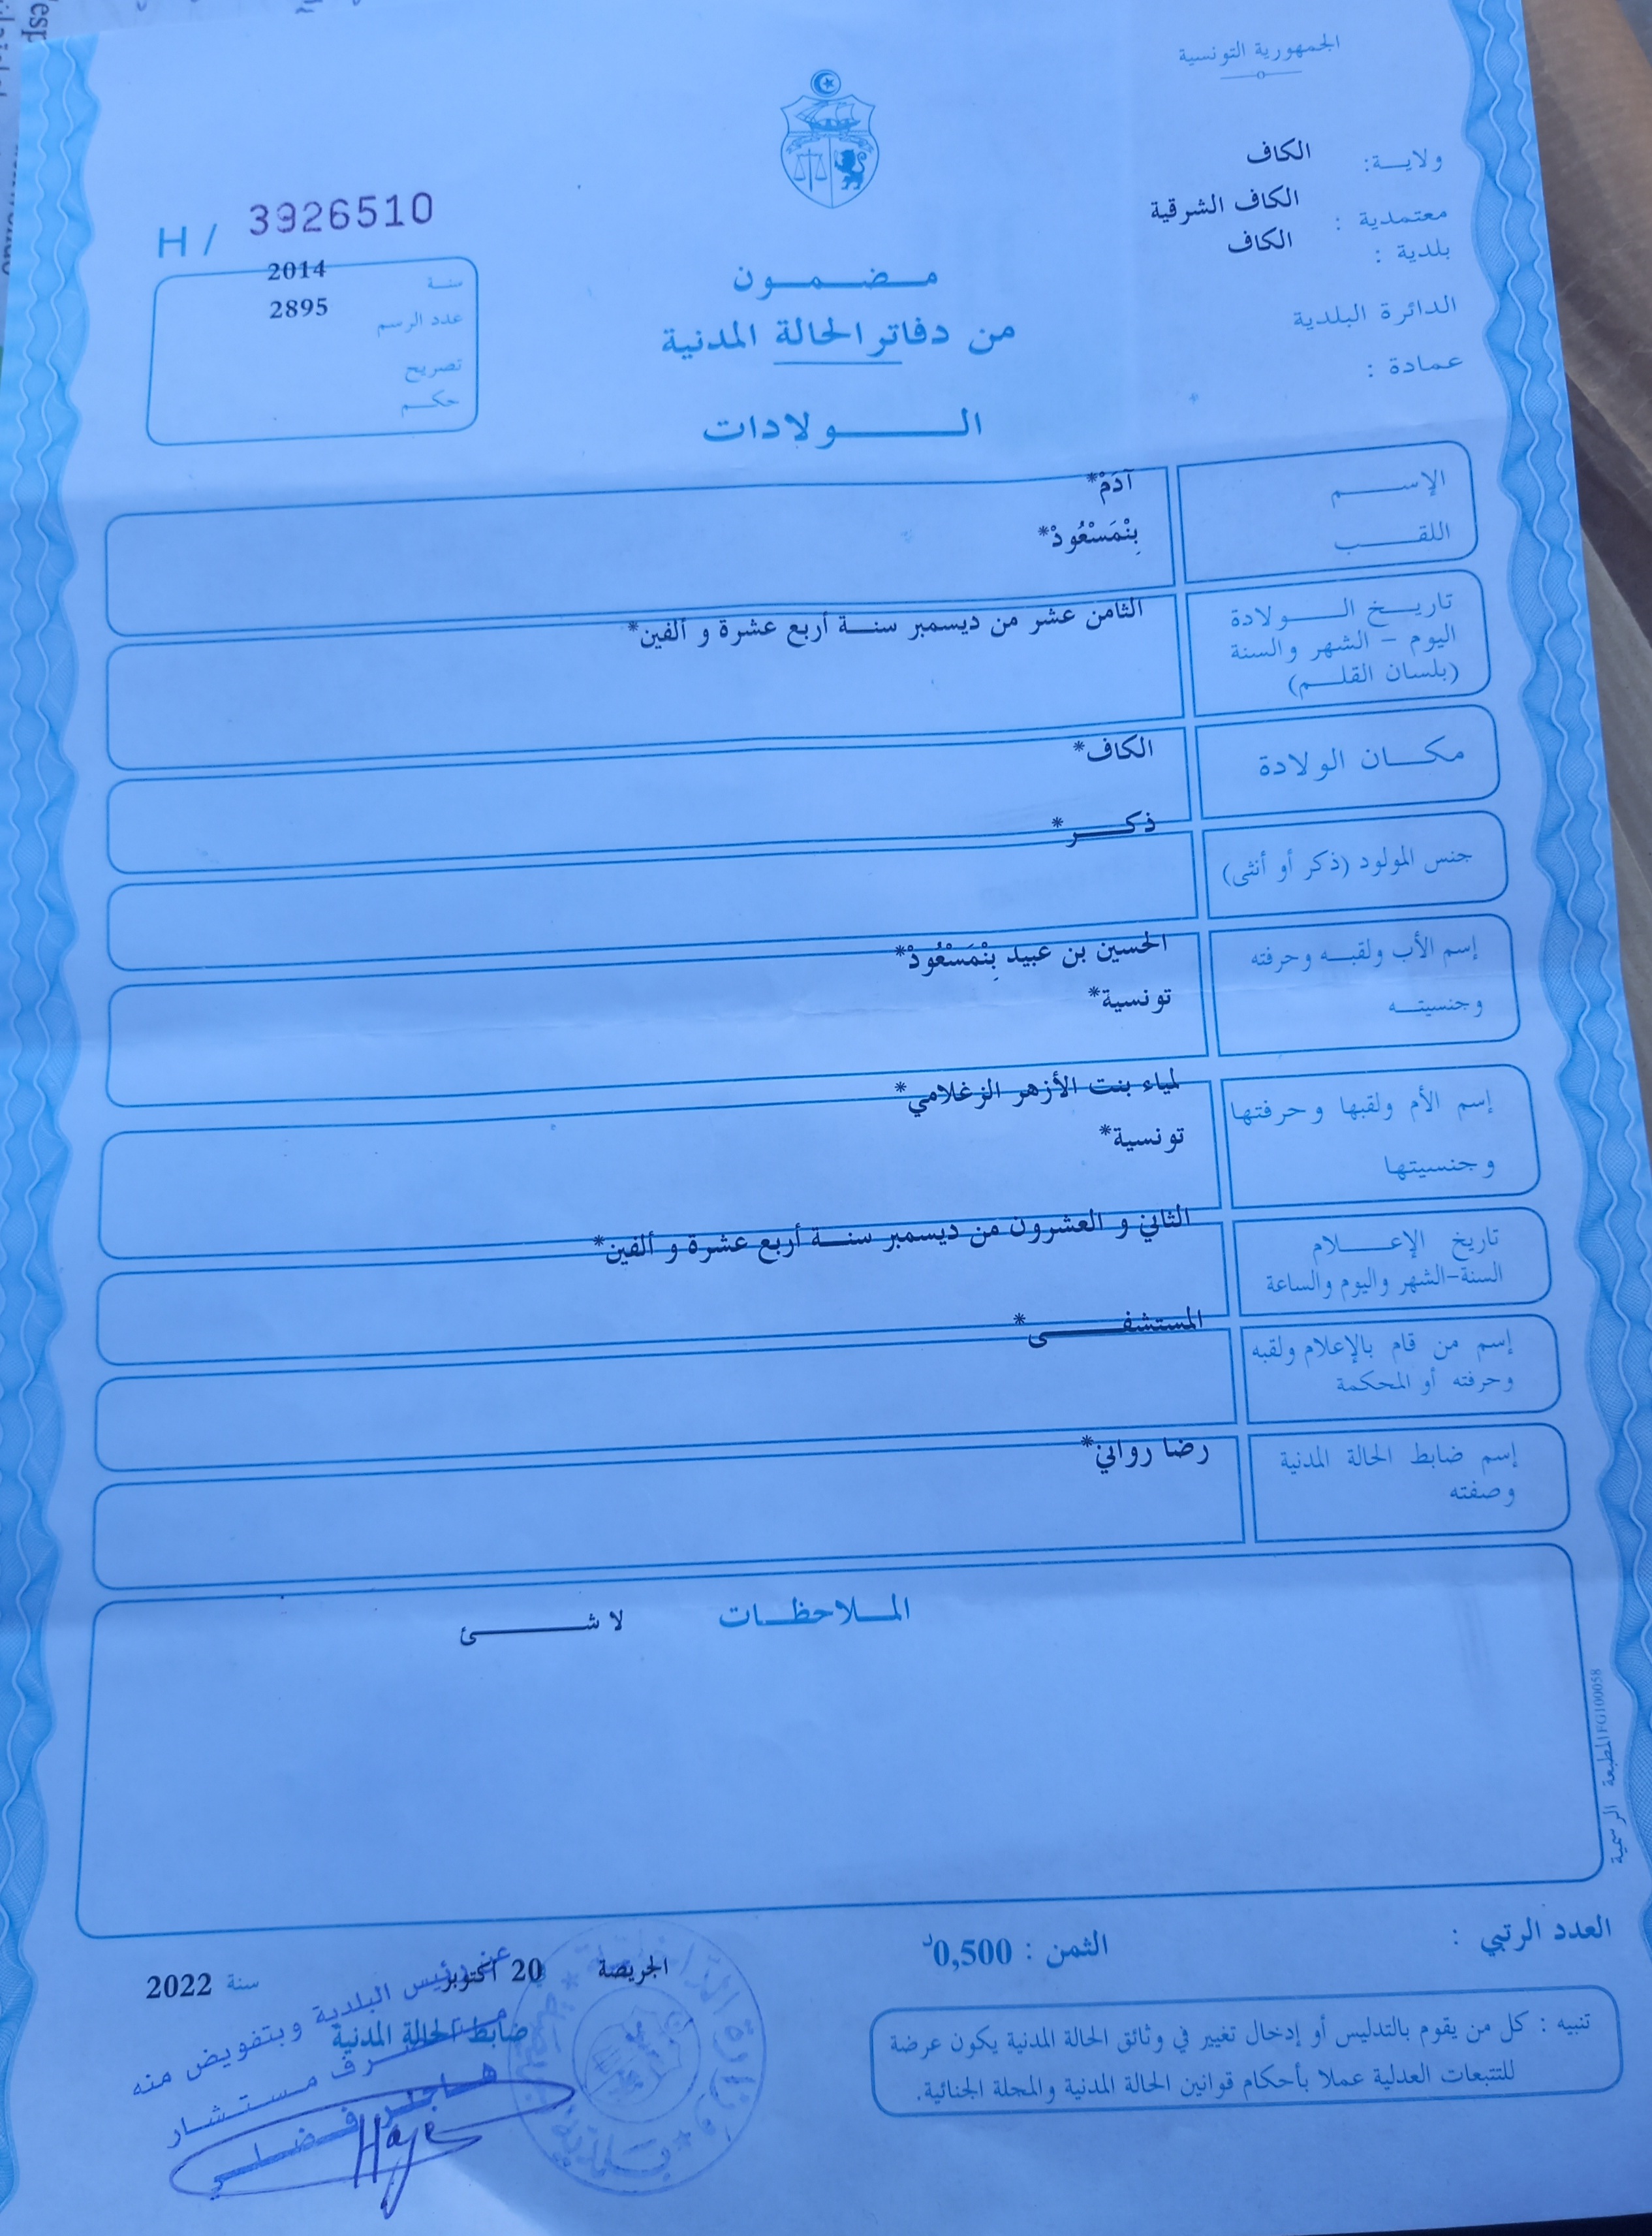 الجمهورية التونسية
ولايـــة: الكاف
معتمدية : الكاف الشرقية
بلدية : الكاف
الدائرة البلدية
عمادة :
H / 3926510
سنـة 2014
عدد الرسم 2895
تصريح
حكــم
مـــضـــمـــون
من دفاتر الحالة المدنية
الـــــولادات
الإســـــم آدَمْ*
اللقـــــب بِنْمَسْعُودْ*
تاريــخ الـــــولادة
اليوم - الشهر والسنة
(بلسان القلـــم)
الثامن عشر من ديسمبر سنـــة أربع عشرة و ألفين*
مكـــان الولادة الكاف*
جنس المولود (ذكر أو أنثى) ذكـــر*
إسم الأب ولقبـــه وحرفته الحسين بن عبيد بِنْمَسْعُودْ*
وجنسيتـــه تونسية*
إسم الأم ولقبها وحرفتها لمياء بنت الأزهر الزغلامي*
وجنسيتها تونسية*
تاريخ الإعـــــلام
السنة-الشهر واليوم والساعة
الثاني و العشرون من ديسمبر سنـــة أربع عشرة و ألفين*
إسم من قام بالإعلام ولقبه
وحرفته أو المحكمة
المستشفـــــى*
إسم ضابط الحالة المدنية
وصفته
رضا رواني*
المـــلاحظـــات لا شـــــئ
المطبعة الرسمية FG100058
العدد الرتبي :
الثمن : 0,500د
الجريصة 20 أكتوبر سنة 2022
ضابط الحالة المدنية
عن رئيس البلدية وبتفويض منه
متصرف مستشار
هاجر فضلي
تنبيه : كل من يقوم بالتدليس أو إدخال تغيير في وثائق الحالة المدنية يكون عرضة
للتتبعات العدلية عملا بأحكام قوانين الحالة المدنية والمجلة الجنائية.